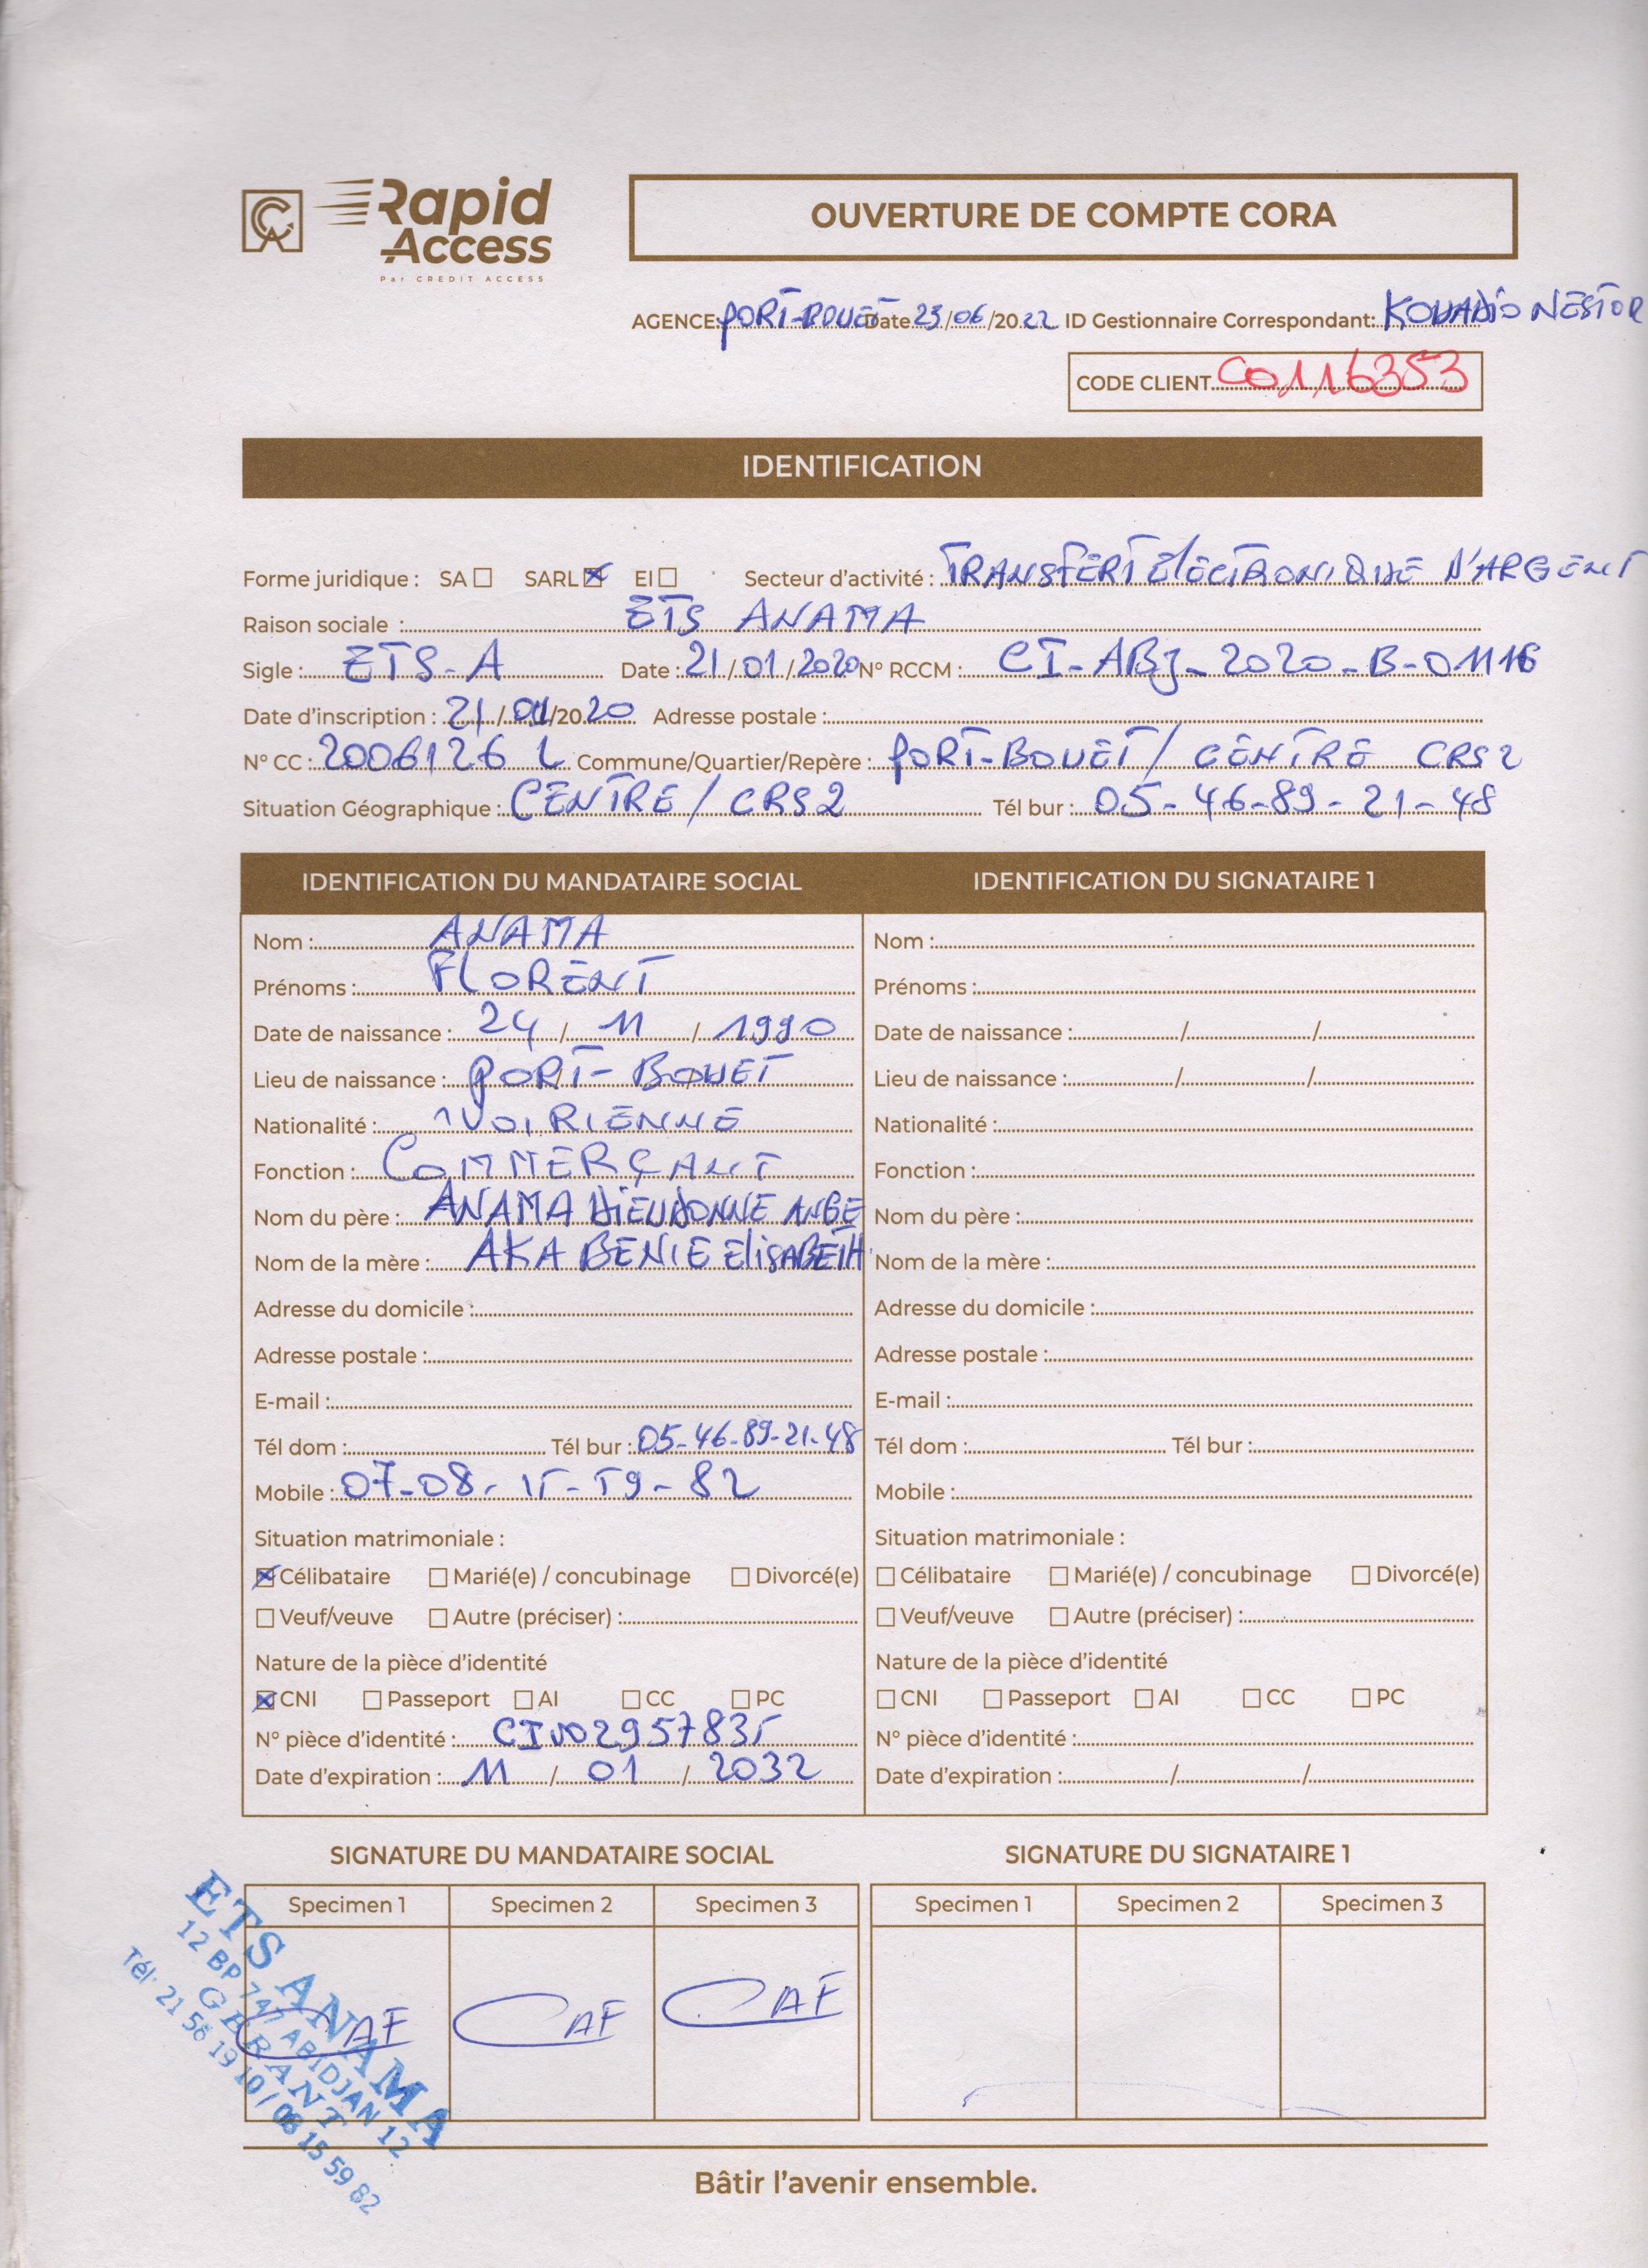 CA Rapid Access
Par CREDIT ACCESS
OUVERTURE DE COMPTE CORA
AGENCE: PORT-BOUET Date 23/06/2022 ID Gestionnaire Correspondant: KOUADIO NESTOR
CODE CLIENT C0116353
IDENTIFICATION
Forme juridique : SA ☐ SARL ☒ EI ☐ Secteur d'activité : TRANSFERT ELECTRONIQUE D'ARGENT
Raison sociale : ETS ANAMA
Sigle : ETS-A Date : 21/01/2020 N° RCCM : CI-ABJ-2020-B-01116
Date d'inscription : 21/01/2020 Adresse postale :
N° CC : 2006126 L Commune/Quartier/Repère : PORT-BOUET / CENTRE CRS2
Situation Géographique : CENTRE / CRS2 Tél bur : 05-46-89-21-48
IDENTIFICATION DU MANDATAIRE SOCIAL IDENTIFICATION DU SIGNATAIRE 1
Nom : ANAMA Nom :
Prénoms : FLORENT Prénoms :
Date de naissance : 24/11/1990 Date de naissance : / /
Lieu de naissance : PORT-BOUET Lieu de naissance : / /
Nationalité : IVOIRIENNE Nationalité :
Fonction : COMMERÇANT Fonction :
Nom du père : ANAMA DIEUDONNE ANGE Nom du père :
Nom de la mère : AKA BENIE ELISABETH Nom de la mère :
Adresse du domicile : Adresse du domicile :
Adresse postale : Adresse postale :
E-mail : E-mail :
Tél dom : Tél bur : 05-46-89-21-48 Tél dom : Tél bur :
Mobile : 07-08-15-59-82 Mobile :
Situation matrimoniale : Situation matrimoniale :
☒ Célibataire ☐ Marié(e) / concubinage ☐ Divorcé(e) ☐ Célibataire ☐ Marié(e) / concubinage ☐ Divorcé(e)
☐ Veuf/veuve ☐ Autre (préciser) : ☐ Veuf/veuve ☐ Autre (préciser) :
Nature de la pièce d'identité Nature de la pièce d'identité
☒ CNI ☐ Passeport ☐ AI ☐ CC ☐ PC ☐ CNI ☐ Passeport ☐ AI ☐ CC ☐ PC
N° pièce d'identité : CI002957835 N° pièce d'identité :
Date d'expiration : 11/01/2032 Date d'expiration : / /
SIGNATURE DU MANDATAIRE SOCIAL SIGNATURE DU SIGNATAIRE 1
Specimen 1 Specimen 2 Specimen 3 Specimen 1 Specimen 2 Specimen 3
AF AF AF
ETS ANAMA
12 BP 747 ABIDJAN 12
GERANT
Tél: 21 56 19 10 / 08 15 59 82
Bâtir l'avenir ensemble.